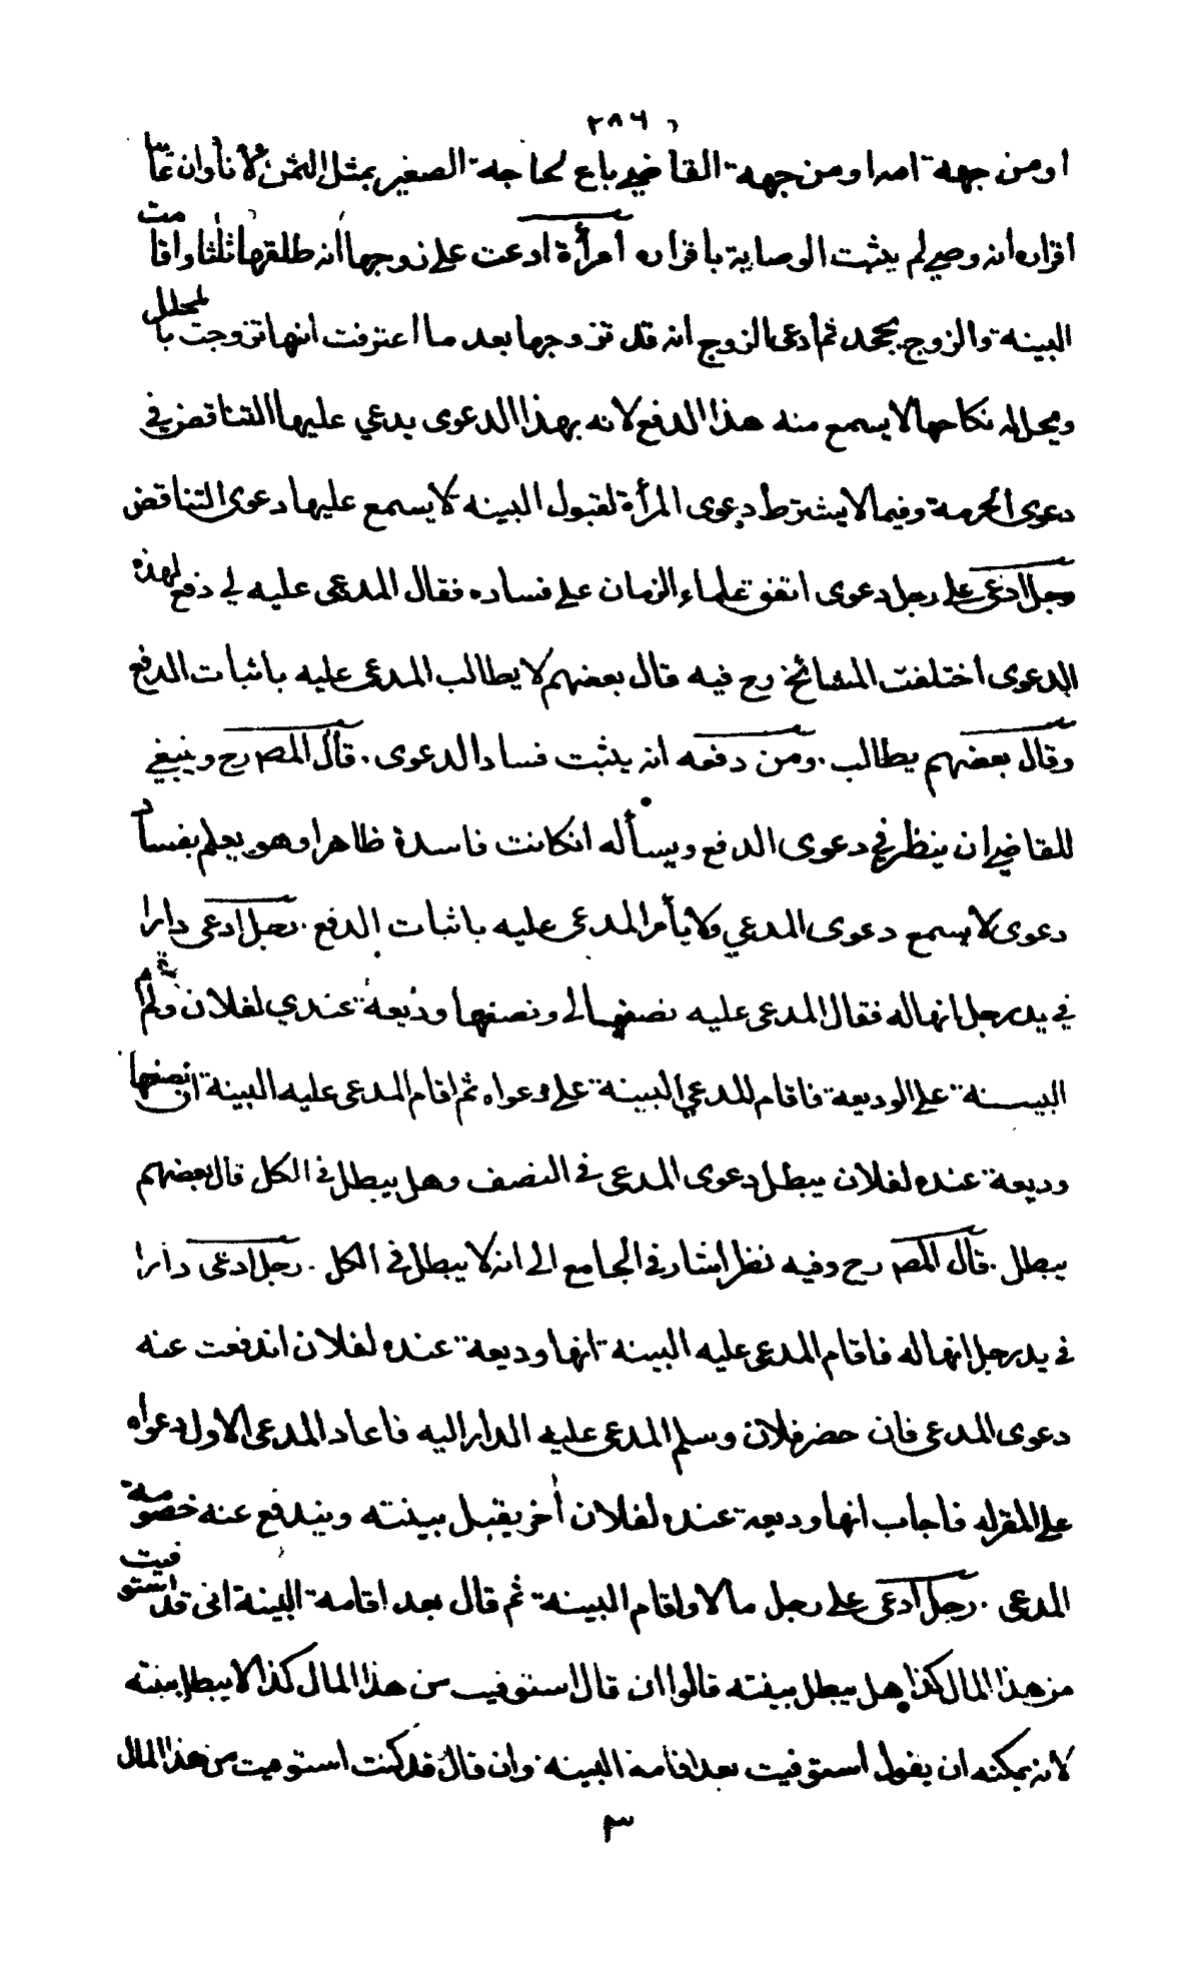 ٢٨٦
او من جهة امه او من جهة القاضي باع لحاجة الصغير بمثل الثمن لانا وان
اقراره انه وصي لم يثبت الوصاية باقراره امرأة ادعت على زوجها انه طلقها ثلثا واقامت
البينة والزوج يجحد ثم ادعى الزوج انه قد تزوجها بعد ما اعترفت انها تزوجت بالمحلل
ويحل له نكاحها لا يسمع منه هذا الدفع لانه بهذا الدعوى يدعي عليها التناقض في
دعوى الحرمة وفيما لا يشترط دعوى المرأة لقبول البينه لا يسمع عليها دعوى التناقض
رجل ادعى على رجل دعوى اتفق علماء الزمان على فساده فقال المدعى عليه لي دفع لهذه
الدعوى اختلفت المشائخ رح فيه قال بعضهم لا يطالب المدعى عليه باثبات الدفع
وقال بعضهم يطالب . ومن دفعه انه يثبت فساد الدعوى . قال المص رح وينبغي
للقاضي ان ينظر في دعوى الدفع ويسأله انكانت فاسدة ظاهرا وهو يعلم بفساد
دعوى لا يسمع دعوى المدعي ولا يأمر المدعى عليه باثبات الدفع . رجل ادعى دارا
في يد رجل انها له فقال المدعى عليه نصفها لي ونصفها وديعة عندي لفلان ولم
البينة على الوديعة فاقام المدعي البينة على دعواه ثم اقام المدعى عليه البينة ان نصفها
وديعة عنده لفلان يبطل دعوى المدعى في النصف وهل يبطل في الكل قال بعضهم
يبطل . قال المص رح وفيه نظر اشار في الجامع الى انه لا يبطل في الكل . رجل ادعى دارا
في يد رجل انها له فاقام المدعى عليه البينة انها وديعة عنده لفلان اندفعت عنه
دعوى المدعى فان حضر فلان وسلم المدعى عليه الدار اليه فاعاد المدعى الاول دعواه
على المقر له فاجاب انها وديعة عنده لفلان أخر يقبل بينته ويندفع عنه خصومة
المدعى . رجل ادعى على رجل مالا واقام البينة ثم قال بعد اقامة البينة انى قد استوفيت
من هذا المال كذا هل يبطل بينته قالوا ان قال استوفيت من هذا المال كذا لا يبطل بينته
لانه يمكنه ان يقول استوفيت بعد اقامة البينه وان قال قد كنت استوفيت من هذا المال